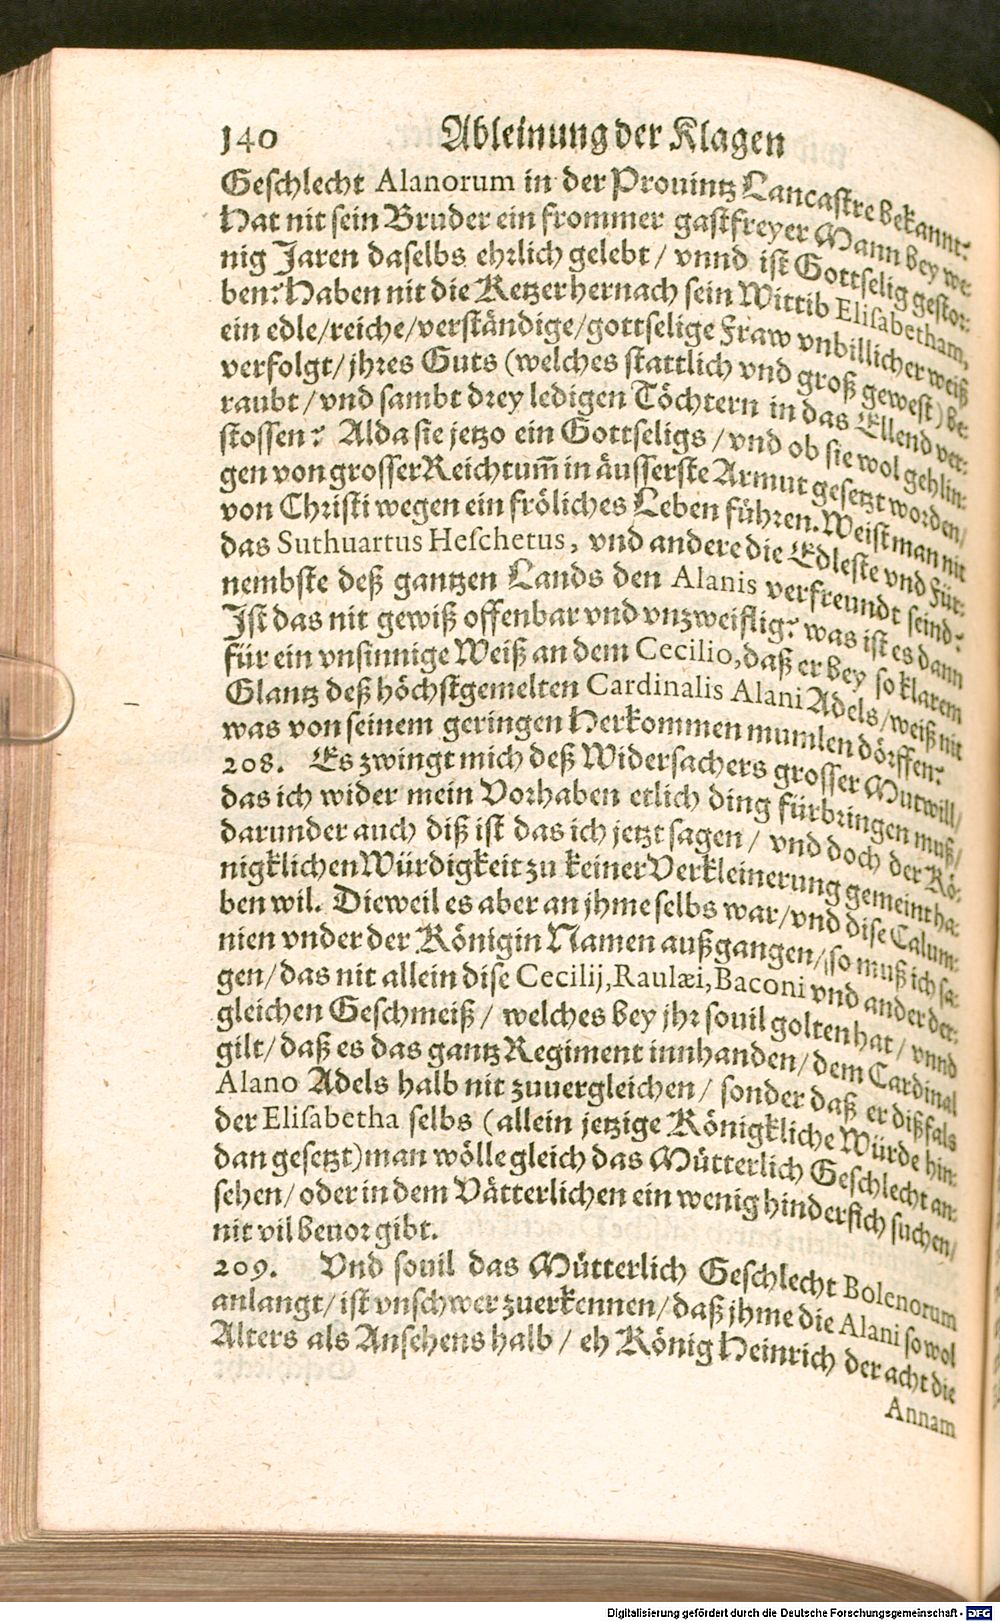 140 Ableinung der Klagen
Geschlecht Alanorum in der Prouintz Lancastre bekannt?
Hat nit sein Bruder ein frommer gastfreyer Mann bey we-
nig Jaren daselbs ehrlich gelebt / vnnd ist Gottselig gestor-
ben? Haben nit die Ketzer hernach sein Wittib Elisabetham,
ein edle/reiche/verständige/gottselige Fraw vnbillicher weiß
verfolgt/jhres Guts (welches stattlich vnd groß gewest) be-
raubt / vnd sambt drey ledigen Töchtern in das Ellend ver-
stossen? Alda sie jetzo ein Gottseligs / vnd ob sie wol gehlin-
gen von grosser Reichtum̃ in äusserste Armut gesetzt worden/
von Christi wegen ein fröliches Leben führen. Weist man nit
das Suthuartus Heschetus, vnd andere die Edleste vnd Für-
nembste deß gantzen Lands den Alanis verfreundt seind?
Ist das nit gewiß offenbar vnd vnzweiflig? was ist es dann
für ein vnsinnige Weiß an dem Cecilio, daß er bey so klarem
Glantz deß höchstgemelten Cardinalis Alani Adels/weiß nit
was von seinem geringen Herkommen mumlen dörffen?
208. Es zwingt mich deß Widersachers grosser Mutwill/
das ich wider mein Vorhaben etlich ding fürbringen muß/
darunder auch diß ist das ich jetzt sagen / vnd doch der Kö-
nigklichen Würdigkeit zu keiner Verkleinerung gemeint ha-
ben wil. Dieweil es aber an jhme selbs war/vnd dise Calum-
nien vnder der Königin Namen außgangen/so muß ich sa-
gen/das nit allein dise Cecilij, Raulæi, Baconi vnd ander der-
gleichen Geschmeiß / welches bey jhr souil golten hat / vnnd
gilt/daß es das gantz Regiment innhanden/dem Cardinal
Alano Adels halb nit zuuergleichen / sonder daß er dißfals
der Elisabetha selbs (allein jetzige Königkliche Würde hin-
dan gesetzt)man wölle gleich das Mütterlich Geschlecht an-
sehen/oder in dem Vätterlichen ein wenig hindersich suchen/
nit vil beuor gibt.
209. Vnd souil das Mütterlich Geschlecht Bolenorum
anlangt/ist vnschwer zuerkennen/daß jhme die Alani so wol
Alters als Ansehens halb / eh König Heinrich der acht die
Annam
Digitalisierung gefördert durch die Deutsche Forschungsgemeinschaft - DFG